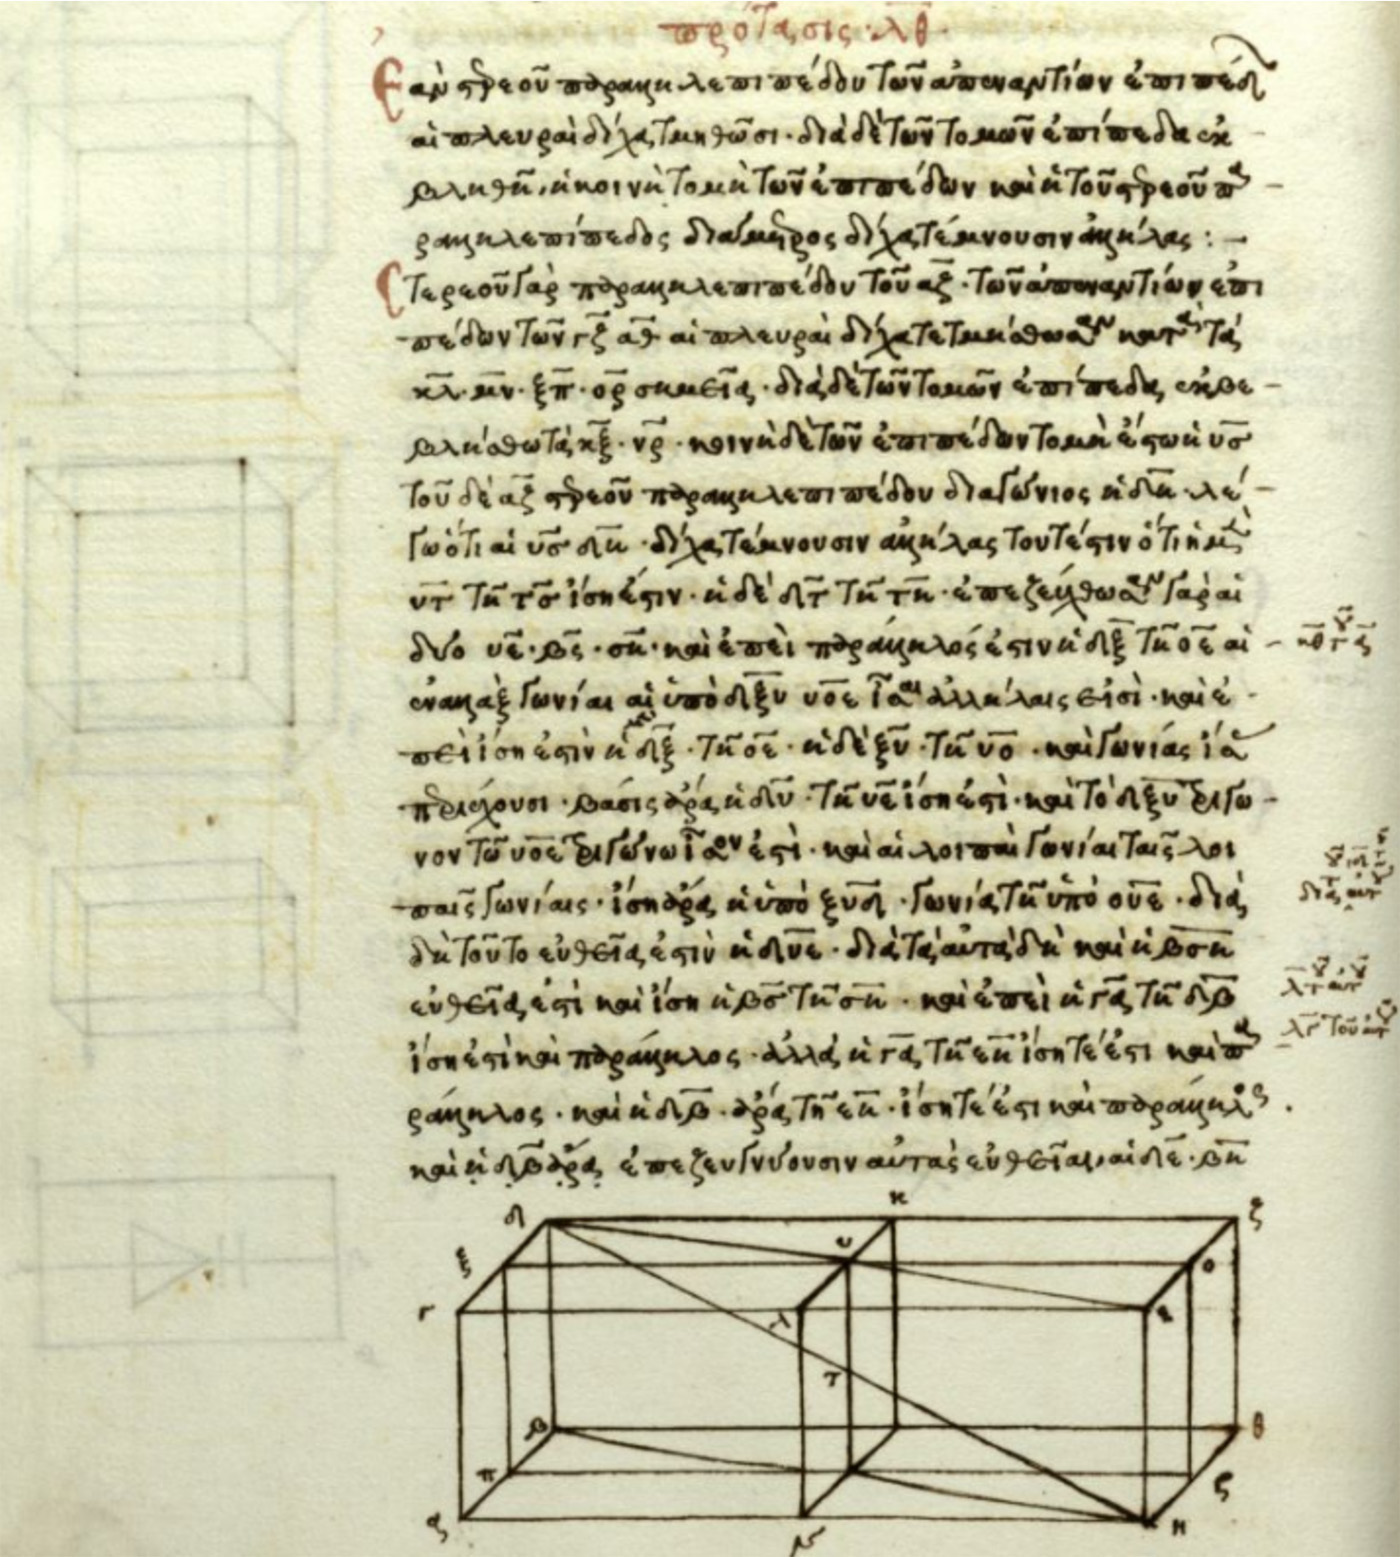 πρότασις λθ
Ἐὰν στερεοῦ παραλληλεπιπέδου τῶν ἀπεναντίων ἐπιπέδ
αἱ πλευραὶ δίχα τμηθῶσι· διὰ δὲ τῶν τομῶν ἐπίπεδα ἐκ
βληθῆ, ἡ κοινὴ τομὴ τῶν ἐπιπέδων καὶ ἡ τοῦ στερεοῦ πα
ραλληλεπίπεδος διάμετρος δίχα τέμνουσιν ἀλλήλας :–
Στερεοῦ γὰρ παραλληλεπιπέδου τοῦ αζ· τῶν ἀπεναντίων ἐπι
πέδων τῶν γζ αθ αἱ πλευραὶ δίχα τετμήσθωσαν κατὰ τὰ
κλ· μν· ξπ· ορ σημεῖα· διὰ δὲ τῶν τομῶν ἐπίπεδα ἐκβε
βλήσθω τὰ κξ· νρ· κοινὴ δὲ τῶν ἐπιπέδων τομὴ ἔστω ἡ υσ
τοῦ δὲ αζ στερεοῦ παραλληλεπιπέδου διαγώνιος ἡ δη· λέ
γω ὅτι αἱ υσ δη· δίχα τέμνουσιν ἀλλήλας τουτέστιν ὅτι ἡ μὲν
υτ τῆ τσ ἴση ἐστιν· ἡ δὲ δτ τῆ τη· ἐπεζεύχθωσαν γὰρ αἱ
δυο υε· βς· ση· καὶ ἐπεὶ παράλληλός ἐστιν ἡ δξ τῆ οε αἱ
ἐναλλὰξ γωνίαι αἱ ὑπὸ δξυ υοε ἴσαι ἀλλήλαις εἰσὶ· καὶ ἐ
πεὶ ἴση ἐστὶν ἡ μὲν δξ· τῆ οε· ἡ δὲ ξυ· τῆ υο· καὶ γωνίας ἴσας
περιέχουσι· βάσις ἄρα ἡ δυ· τῆ υε ἴση ἐστὶ· καὶ τὸ δξυ τρίγω
νον τῶ υοε τριγώνω ἴσον ἐστὶ· καὶ αἱ λοιπαὶ γωνίαι ταῖς λοι
παῖς γωνίαις· ἴση ἄρα ἡ ὑπὸ ξυδ· γωνία τῆ ὑπὸ ουε· διὰ
δὴ τοῦτο εὐθεῖα ἐστὶν ἡ δυε· διὰ τὰ αὐτὰ δὴ καὶ ἡ βση
εὐθεῖα ἐστὶ καὶ ἴση ἡ βσ τῆ ση· καὶ ἐπεὶ ἡ γα τῆ δβ
ἴση ἐστὶ καὶ παράλληλος· ἀλλὰ ἡ γα τῆ εη ἴση τέ ἐστι καὶ πα
ράλληλος· καὶ ἡ δβ· ἄρα τῆ εη· ἴση τέ ἐστι καὶ παράλληλος·
καὶ ἡ δβ ἄρα ἐπεζευγνύουσιν αὐτὰς εὐθεῖαι, αἱ δε· βη
δ κ ζ
ξ υ ο
γ λ ε
τ
β θ
π ς
α μ η